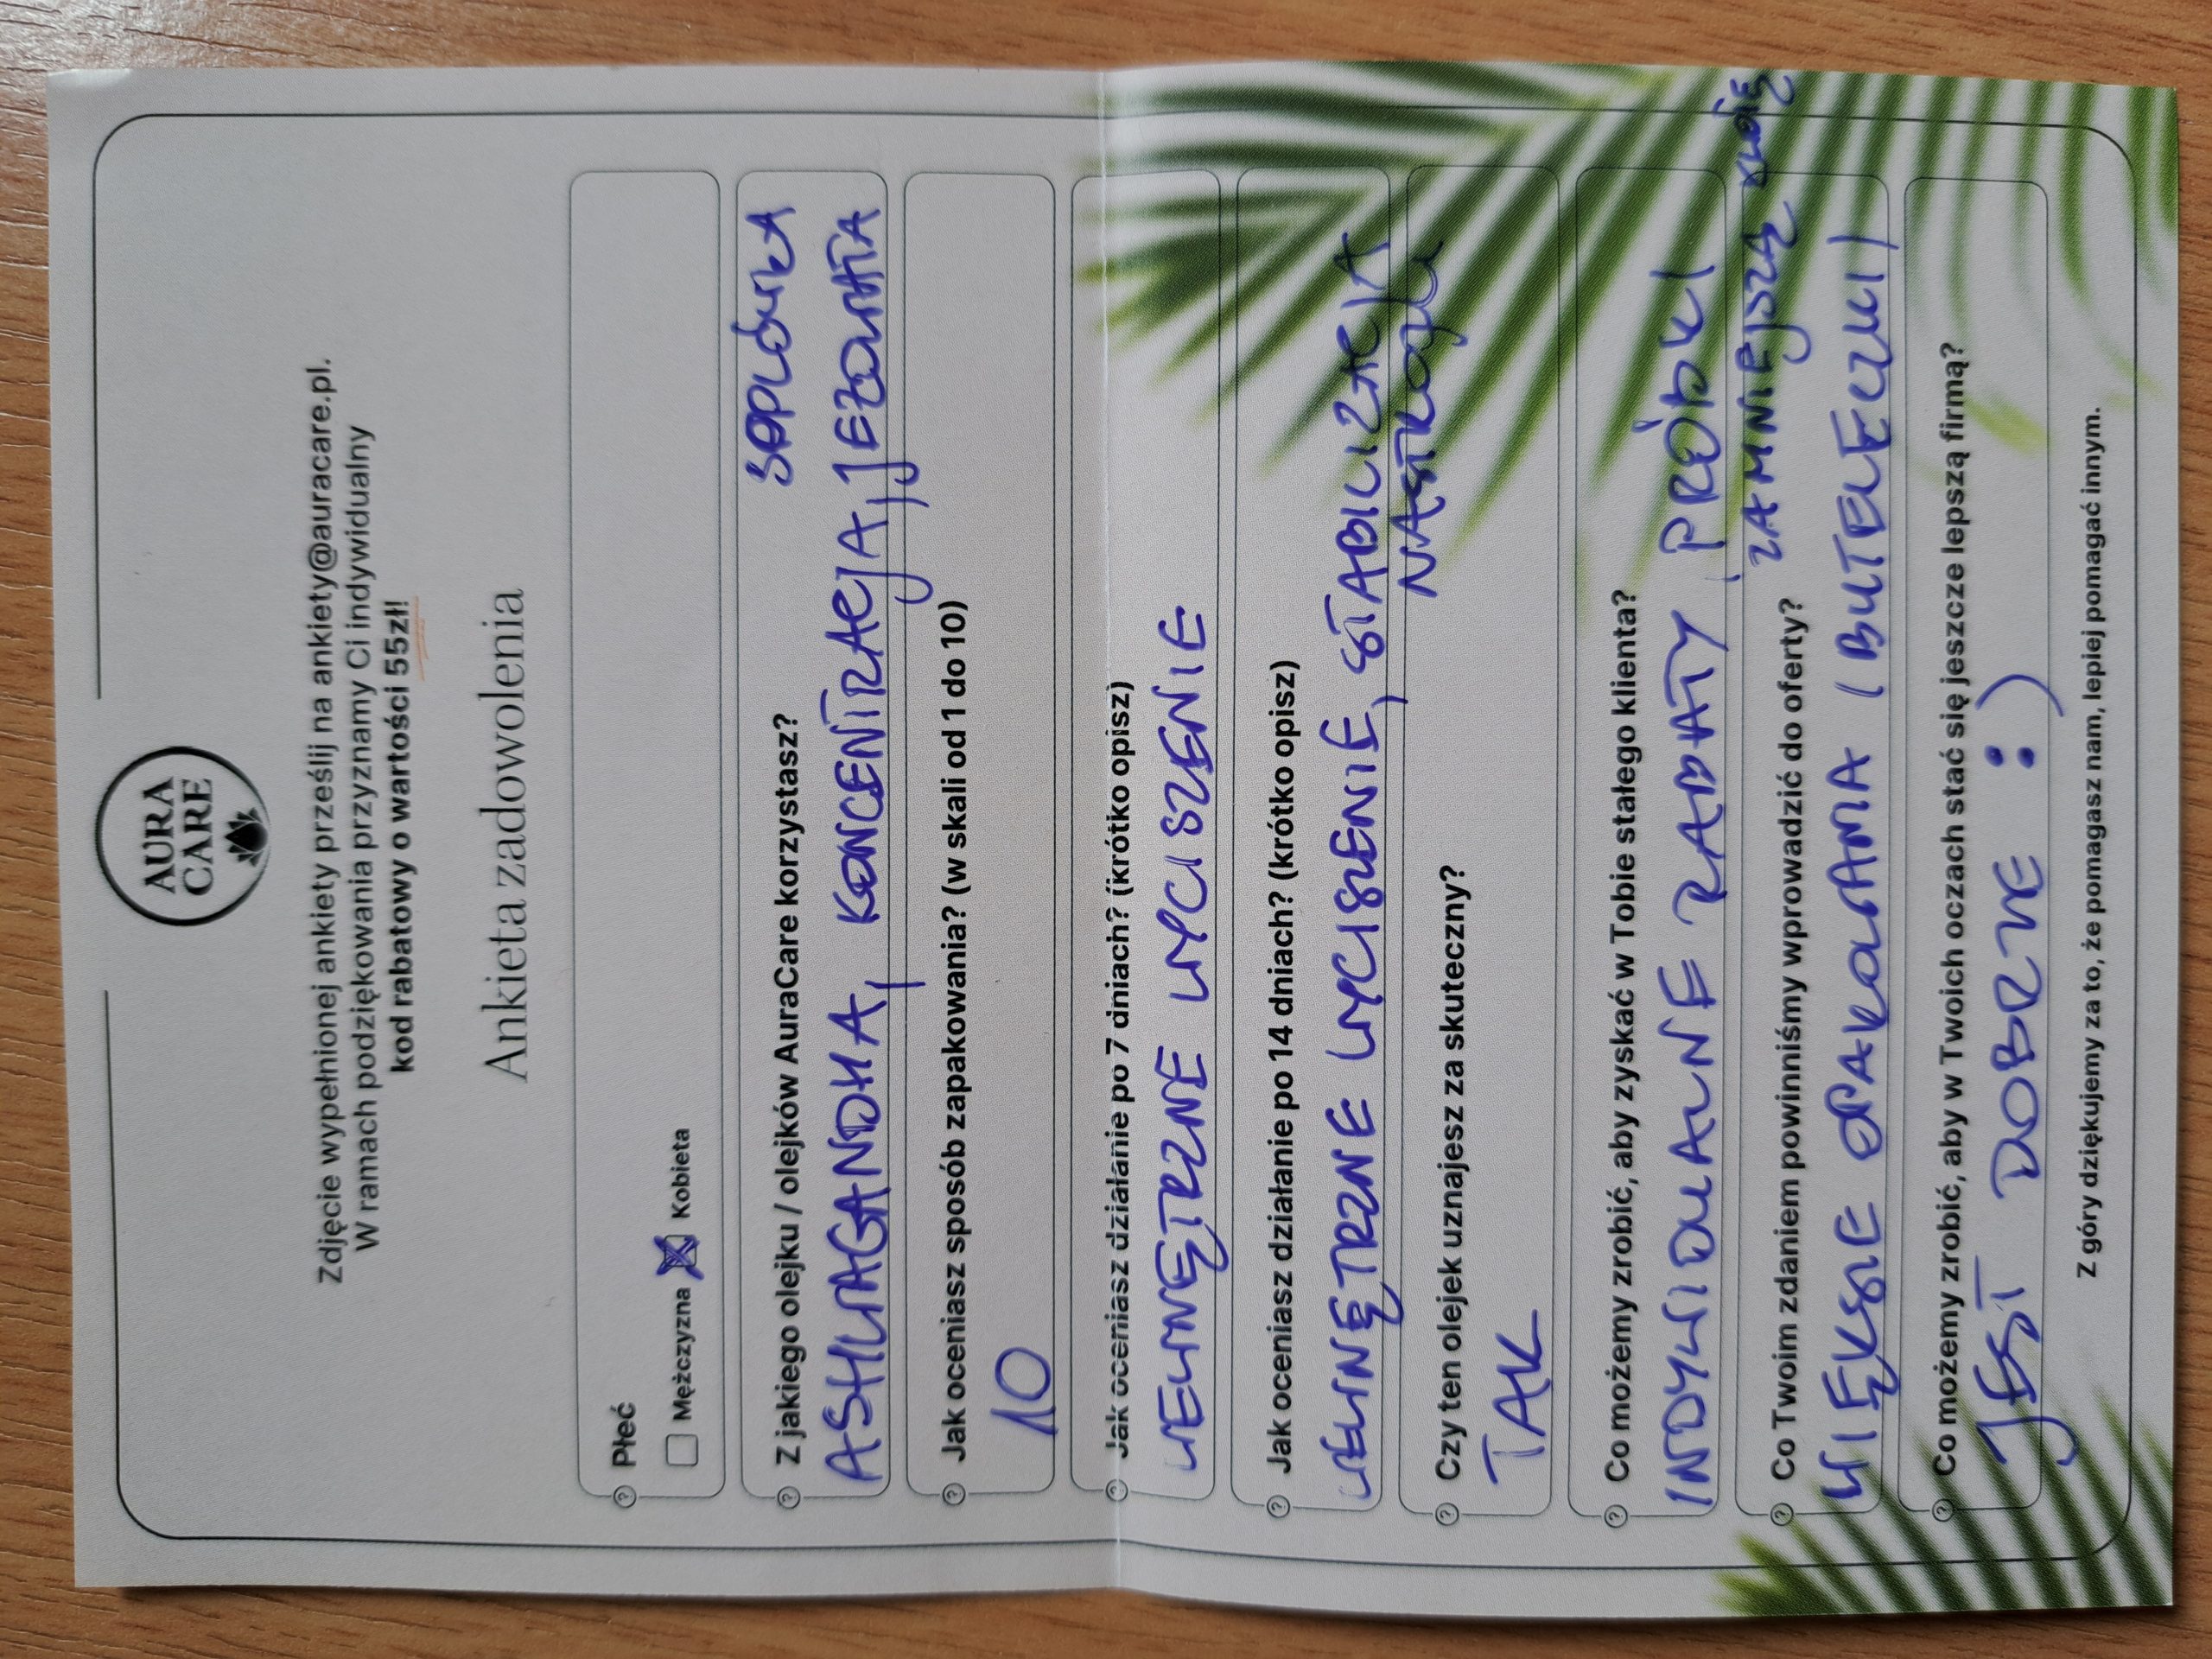 AURA
CARE
Zdjęcie wypełnionej ankiety prześlij na ankiety@auracare.pl.
W ramach podziękowania przyznamy Ci indywidualny
kod rabatowy o wartości 55zł!
Ankieta zadowolenia
Płeć
Mężczyzna Kobieta
Z jakiego olejku / olejków AuraCare korzystasz?
SOPLÓWKA
ASHWAGANDHA, KONCENTRACJA, JEŻOWATA
Jak oceniasz sposób zapakowania? (w skali od 1 do 10)
10
Jak oceniasz działanie po 7 dniach? (krótko opisz)
WEWNĘTRZNE WYCISZENIE
Jak oceniasz działanie po 14 dniach? (krótko opisz)
WEWNĘTRZNE WYCISZENIE, STABILIZACJA
NASTROJU
Czy ten olejek uznajesz za skuteczny?
TAK
Co możemy zrobić, aby zyskać w Tobie stałego klienta?
INDYWIDUALNE RABATY, PRÓBKI
Co Twoim zdaniem powinniśmy wprowadzić do oferty?
ZA MNIEJSZĄ
WIĘKSZE OPAKOWANIA (BUTELECZKI)
Co możemy zrobić, aby w Twoich oczach stać się jeszcze lepszą firmą?
JEST DOBRZE :)
Z góry dziękujemy za to, że pomagasz nam, lepiej pomagać innym.